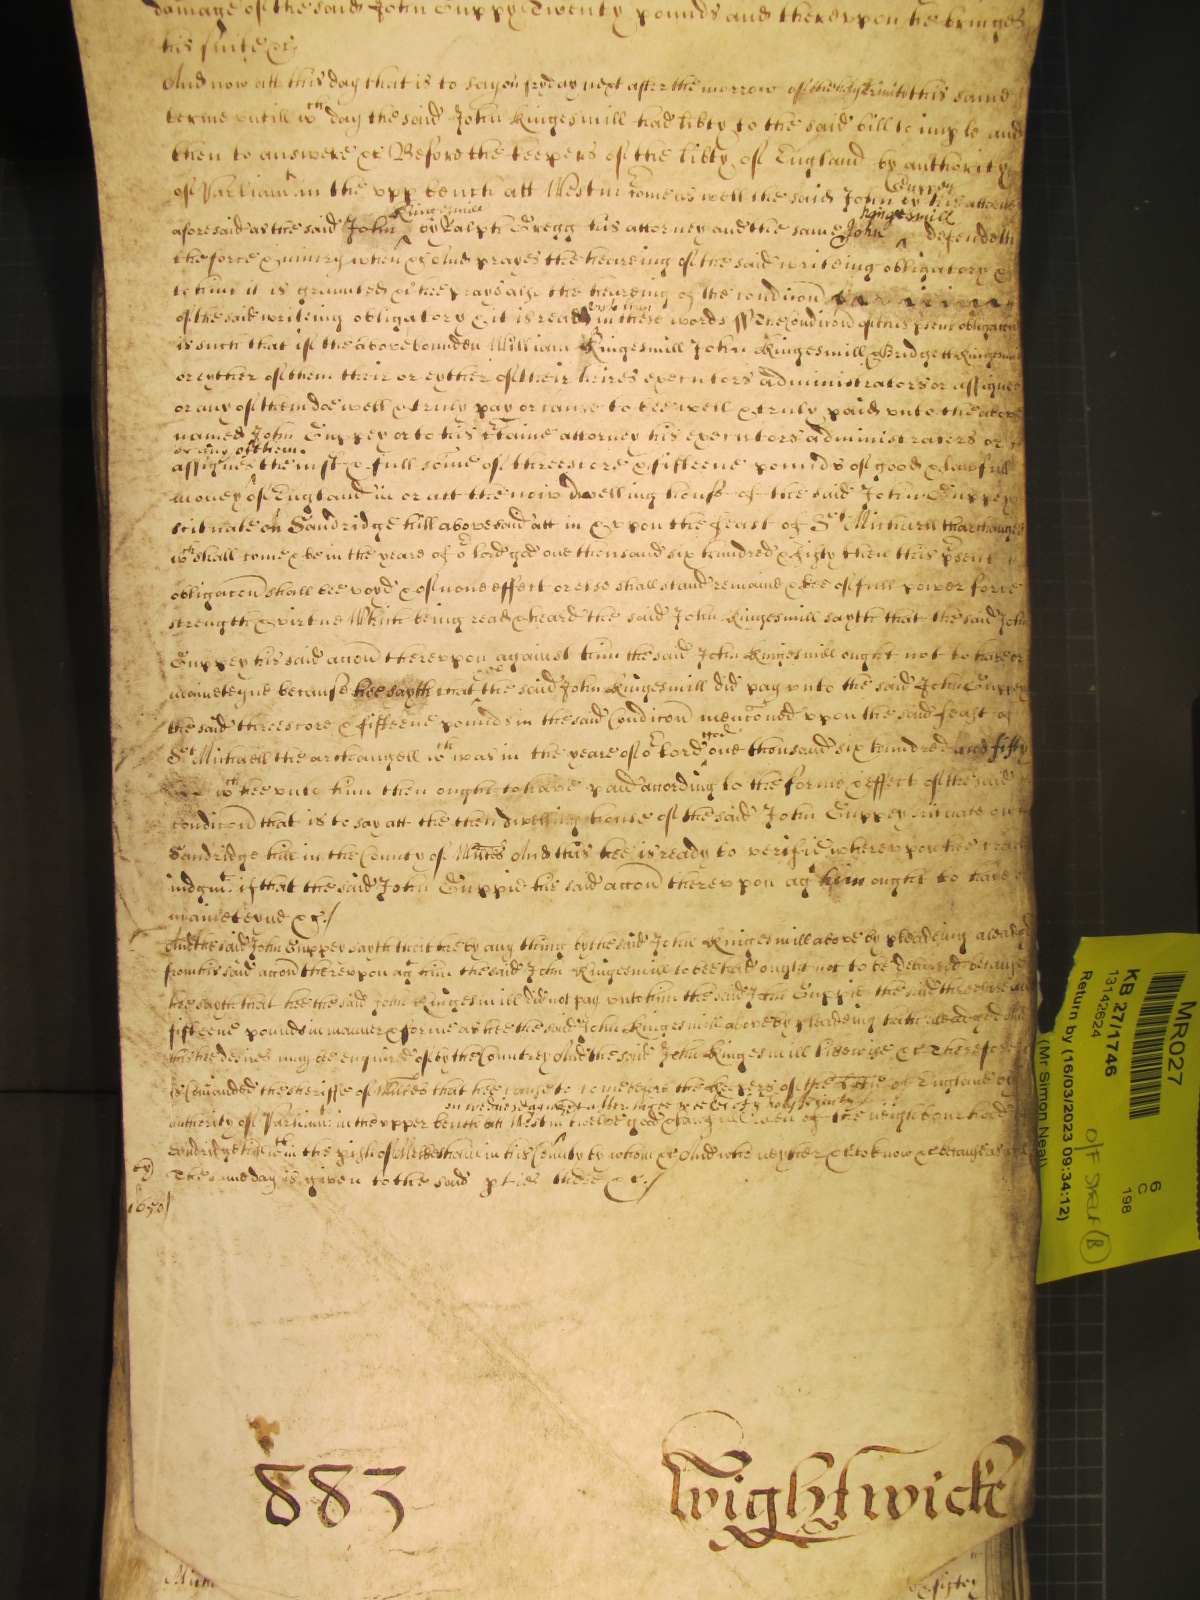 damage of the said John Guppy Twenty pounds and therevpon he bringes
his suite &c
And now att this day that is to say on fryday next after the morrow of the holy Trinitie this same
terme vntill wch day the said John Kingesmill had libty to the said bill to imple and
then to answere &c Before the keepers of the libty of England by authority
of Parliamt in the vpp bench att Westm come as well the said John Guppey by his attorney
aforesaid as the said John Kingesmill by Ralph Gregg his attorney and the same John Kingesmill defendeth
the force & iniury when &c And prayes the heareing of the said writeing obligatory &
to him it is graunted &c hee prayes also the heareing of the condicon
of the said writeing obligatory & it is read vnto him in these words ss The Condicon of this psent obligacon
is such that if the abovebounden William Kingesmill John Kingesmill & Bridgett Kingesmill
or eyther of them their or eyther of their heires executors administrators or assignes
or any of them doe well & truly pay or cause to bee well & truly paid vnto the above
named John Guppey or to his certaine attorney his executors administrators or
assignes or any of them. the iust & full some of threescore & fifteene pounds of good & lawfull
money of England in or att the now dwelling house of the said John Guppey
scituate on Sandridge hill abovesaid att in & vpon the feast of St Michaell tharchangell
wch shall come & be in the yeare of or lord god one thousand six hundred & fifty then this psent
obligacon shall bee voyd & of none effect or else shall stand remaine & bee of full power force
strength & virtue Which being read & heard the said John Kingesmill sayth that the said John
Guppey his said accon therevpon against him the said John Kingesmill ought not to have or
mainteyne because hee sayth that hee the said John Kingesmill did pay vnto the said John Guppey
the said threescore & fifteene pounds in the said Condicon menconed vpon the said feast of
St Michaell the archangell wch was in the yeare of or Lord god one thousand six hundred and fifty
wch hee vnto him then ought to have paid according to the forme & effect of the said
condicon that is to say att the then dwelling house of the said John Guppey scituate on
Sandridge hill in the County of Wiltes And this hee is ready to verifie wherevpon hee prayes
iudgmt if that the said John Guppie his said accon therevpon agt him ought to have or
mainteyne &c/
And the said John Guppey sayth that hee by any thing by the said John Kingesmill above by pleadeing alleadged
from his said accon therevpon agt him the said John Kingesmill to bee had ought not to be debarred because
hee sayth that hee the said John Kingesmill did not pay vnto him the said John Guppie the said threescore and
fifteene pounds in manner & forme as hee the said John Kingesmill above by pleadeing hath alleadged And
this hee desires may be enquired of by the Countrey And the said John Kingesmill likewise &c Therefore
is Comanded the sheriffe of Wiltes that hee cause to come before the keepers of the libtie of England by
authority of Parliamt in the vpper bench att Westm on wednesday next after three weekes of holy Trinity twelve good & lawfull men of the neighbourhood of
Sandridge hill wch in the pish of Melkesham in his County by whom &c And who neyther &c to know &c because as well
The same day is given to the said pties there &c/
1650
883
Wightwicke
MR027
KB 27/1746
13142624
Return by (16/03/2023 09:34:12)
(Mr Simon Neal)
6
C
198
O/F SHELF (B)